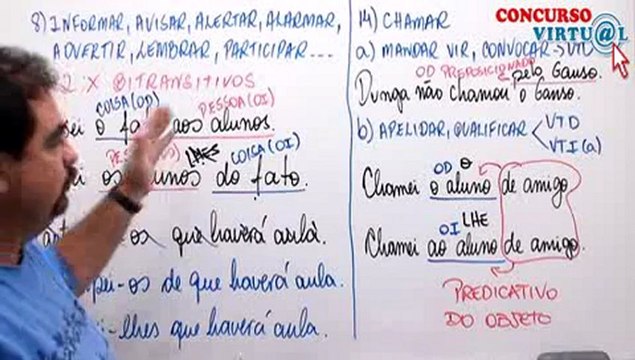 8) INFORMAR, AVISAR, ALERTAR, ALARMAR,
ADVERTIR, LEMBRAR, PARTICIPAR...
2 X BITRANSITIVOS
COISA (OD) PESSOA (OI)
ei o fato aos alunos.
LHES COISA (OI)
ei os alunos do fato.
que haverá aula.
ei-os de que haverá aula.
i-lhes que haverá aula.
14) CHAMAR
a) MANDAR VIR, CONVOCAR → VTD
OD PREPOSICIONADO
pelo Ganso.
Dunga não chamou o Ganso.
b) APELIDAR, QUALIFICAR < VTD
VTI (a)
OD O
Chamei o aluno de amigo.
OI LHE
Chamei ao aluno de amigo.
PREDICATIVO
DO OBJETO
CONCURSO
VIRTU@L